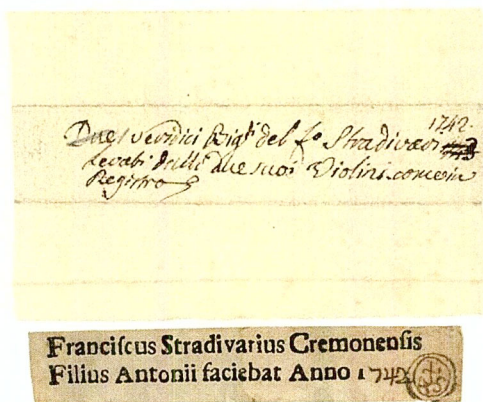 1742
Due veridici Bigti del fo Stradivari
levati dalli Due suoi Violini come in
Registro
Franciſcus Stradivarius Cremonenſis
Filius Antonii faciebat Anno 1742